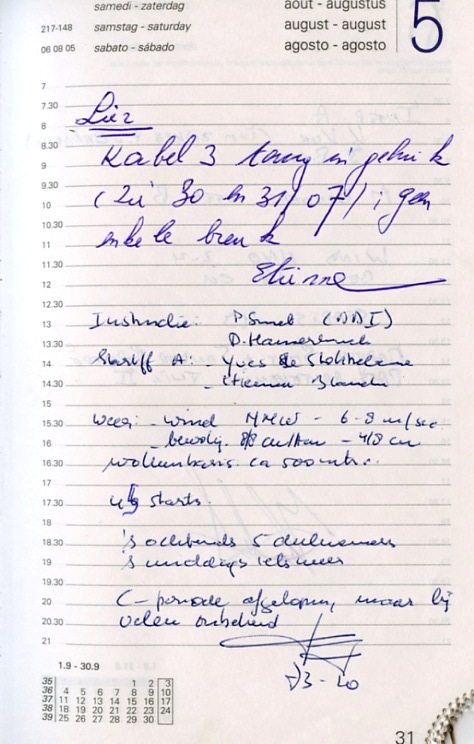 samedi - zaterdag août - augustus
217-148 samstag - saturday august - august
06 08 05 sabato - sábado agosto - agosto
5
7
7.30
Lier
8
8.30
Kabel 3 terug in gebruik
9
9.30
(zie 30 en 31/07); geen
10
10.30
enkele breuk
11
11.30
Etienne
12
12.30
Instructie: P. Smet (DDI)
13
13.30
D.
Startoff A: - Yves
14
- Etienne
14.30
15
Weer: - wind NNW - 6-8 m/sec
15.30
- 8/8 - 4/8 cu
16
16.30
wolkenbasis ca 500 mtr.
17
17.30
starts.
18
18.30
's ochtends 5 deelnemers
19
's middags iets meer
19.30
20
C-periode afgelopen, maar bij
20.30
velen onbekend
21
1.9 - 30.9
35 1 2 3
36 4 5 6 7 8 9 10
37 11 12 13 14 15 16 17
38 18 19 20 21 22 23 24
39 25 26 27 28 29 30
31